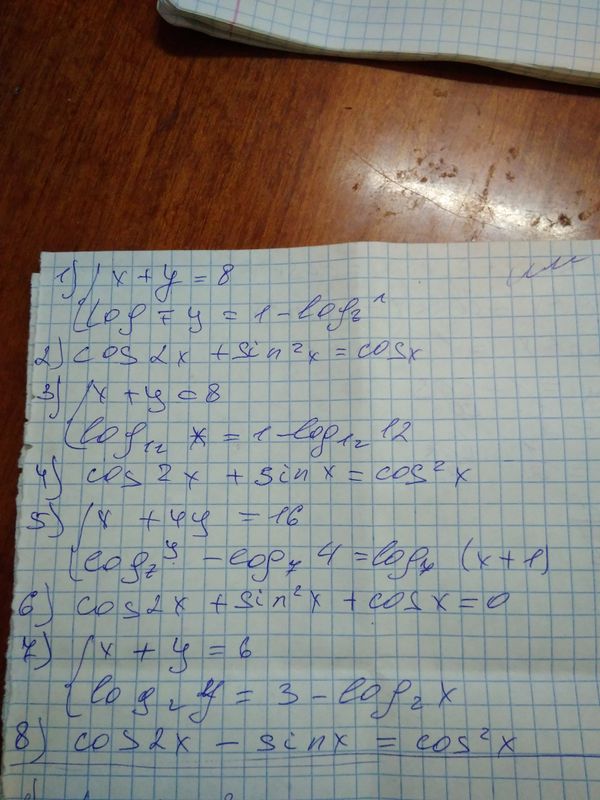 1) { x + y = 8
log 7 y = 1 - log
2) cos 2x + sin²x = cosx
3) { x + y = 8
log₁₂ x = 1 - log₁₂ 12
4) cos 2x + sin x = cos²x
5) { x + 4y = 16
log₇ y - log₇ 4 = log₇ (x + 1)
6) cos2x + sin²x + cosx = 0
7) { x + y = 6
log₂ y = 3 - log₂ x
8) cos2x - sinx = cos²x